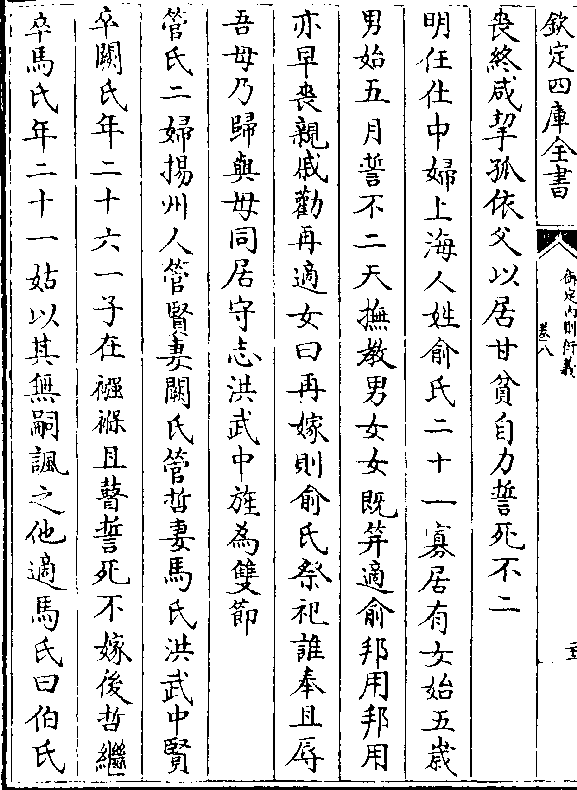 欽定四庫全書
御定內則衍義
卷八
喪終咸挈孤依父以居甘貧自力誓死不二
明任仕中婦上海人姓俞氏二十一寡居有女始五歲
男始五月誓不二天撫教男女女既筓適俞邦用邦用
亦早喪親戚勸再適女曰再嫁則俞氏祭祀誰奉且辱
吾母乃歸與母同居守志洪武中旌為雙節
管氏二婦揚州人管賢妻闕氏管哲妻馬氏洪武中賢
卒闕氏年二十六一子在襁褓且瞽誓死不嫁後哲繼
卒馬氏年二十一姑以其無嗣諷之他適馬氏曰伯氏